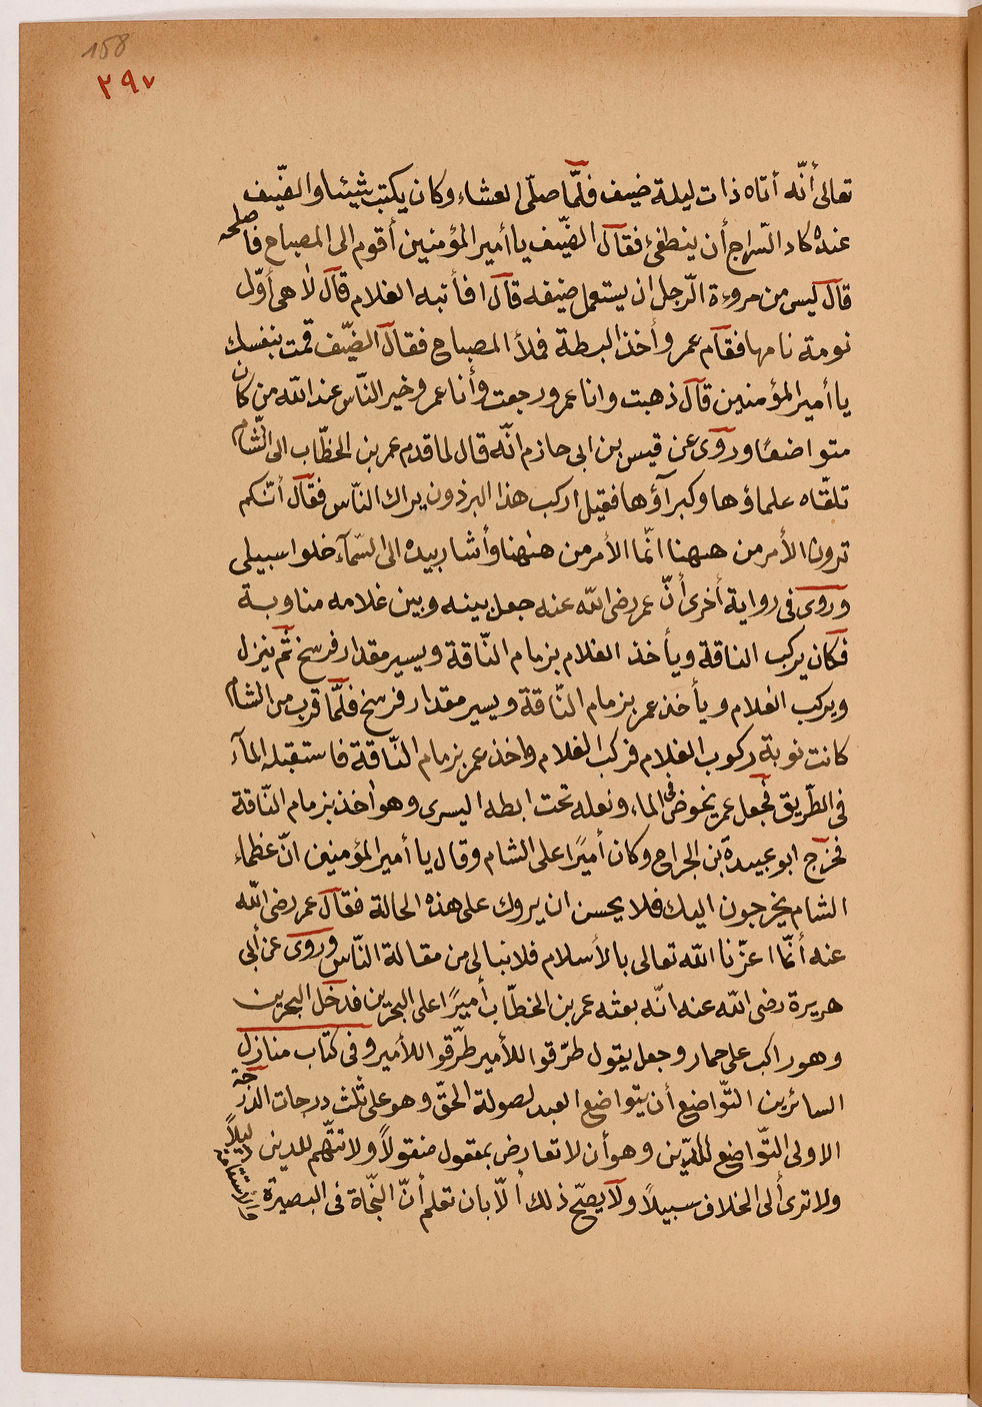 158
٢٩٧
تعالى أنّه أتاه ذات ليلة ضيف فلمّا صلّى العشاء وكان يكتب شيئا والضّيف
عنده كاد السّراج أن ينطفئ فقال الضّيف يا أمير المؤمنين أقوم الى المصباح فأصلحه
قال ليس من مروءة الرّجل ان يستعمل ضيفه قال افأنبه الغلام قال لا هى أوّل
نومة نامها فقام عمر وأخذ البطة فملأ المصباح فقال الضّيف قمت بنفسك
يا أمير المؤمنين قال ذهبت وانا عمر ورجعت وأنا عمر وخير النّاس عند الله من كان
متواضعًا وروى عن قيس بن ابى حازم انّه قال لما قدم عمر بن الخطّاب الى الشّام
تلقّاه علماؤها وكبرآؤها فقيل اركب هذا البرذون يراك النّاس فقال أنّكم
ترون الأمر من ههنا انّما الأمر من ههنا وأشار بيده الى السّمآء خلوا سبيلى
وروى فى رواية أخرى أنّ عمر رضى الله عنه جعل بينه وبين غلامه مناوبة
فكان يركب الناقة ويأخذ الغلام بزمام النّاقة ويسير مقدار فرسخ ثم ينزل
ويركب الغلام ويأخذ عمر بزمام النّاقة ويسير مقدار فرسخ فلمّا قرب من الشام
كانت نوبة ركوب الغلام فركب الغلام واخذ عمر بزمام النّاقة فاستقبله المآء
فى الطّريق فجعل عمر يخوض فى الماء ونعله تحت ابطه اليسرى وهو أخذ بزمام النّاقة
فخرج ابو عبيدة بن الجراح وكان أميرًا على الشام وقال يا أمير المؤمنين انّ عظماء
الشام يخرجون اليك فلا يحسن ان يروك على هذه الحالة فقال عمر رضى الله
عنه أنّما اعزّنا الله تعالى بالأسلام فلا نبالى من مقالة النّاس وروى عن أبى
هريرة رضى الله عنه انّه بعثه عمر بن الخطّاب أميرًا على البحرين فدخل البحرين
وهو راكب على حمار وجعل يقول طرّقوا للأمير طرّقوا للأمير وفى كتاب منازل
السائرين التّواضع أن يتواضع العبد لصولة الحقّ وهو على ثلث درجات الدّرجة
الاولى التّواضع للدّين وهو أن لا تعارض بمعقول منقولاً ولا تتّهم للدين دليلاً
ولا ترى ألى الخلاف سبيلاً ولا يصحّ ذلك ألّا بان تعلم أنّ النّجاة فى البصيرة والاستقامة